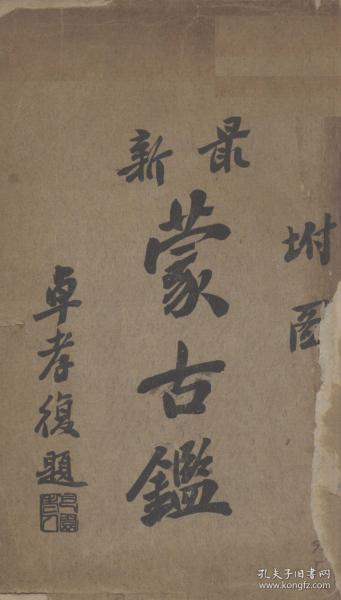 坿圖
最新
蒙古鑑
卓孝復題
孔夫子旧书网